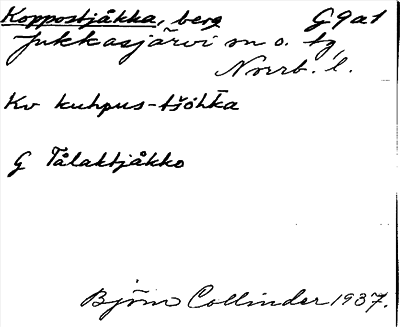 Koppostjåkka, berg G9a1
Jukkasjärvi sn o. tg,
Norrb. l.
Kv kuhpus-tšohka
G Tålaktjåkko
Björn Collinder 1937.